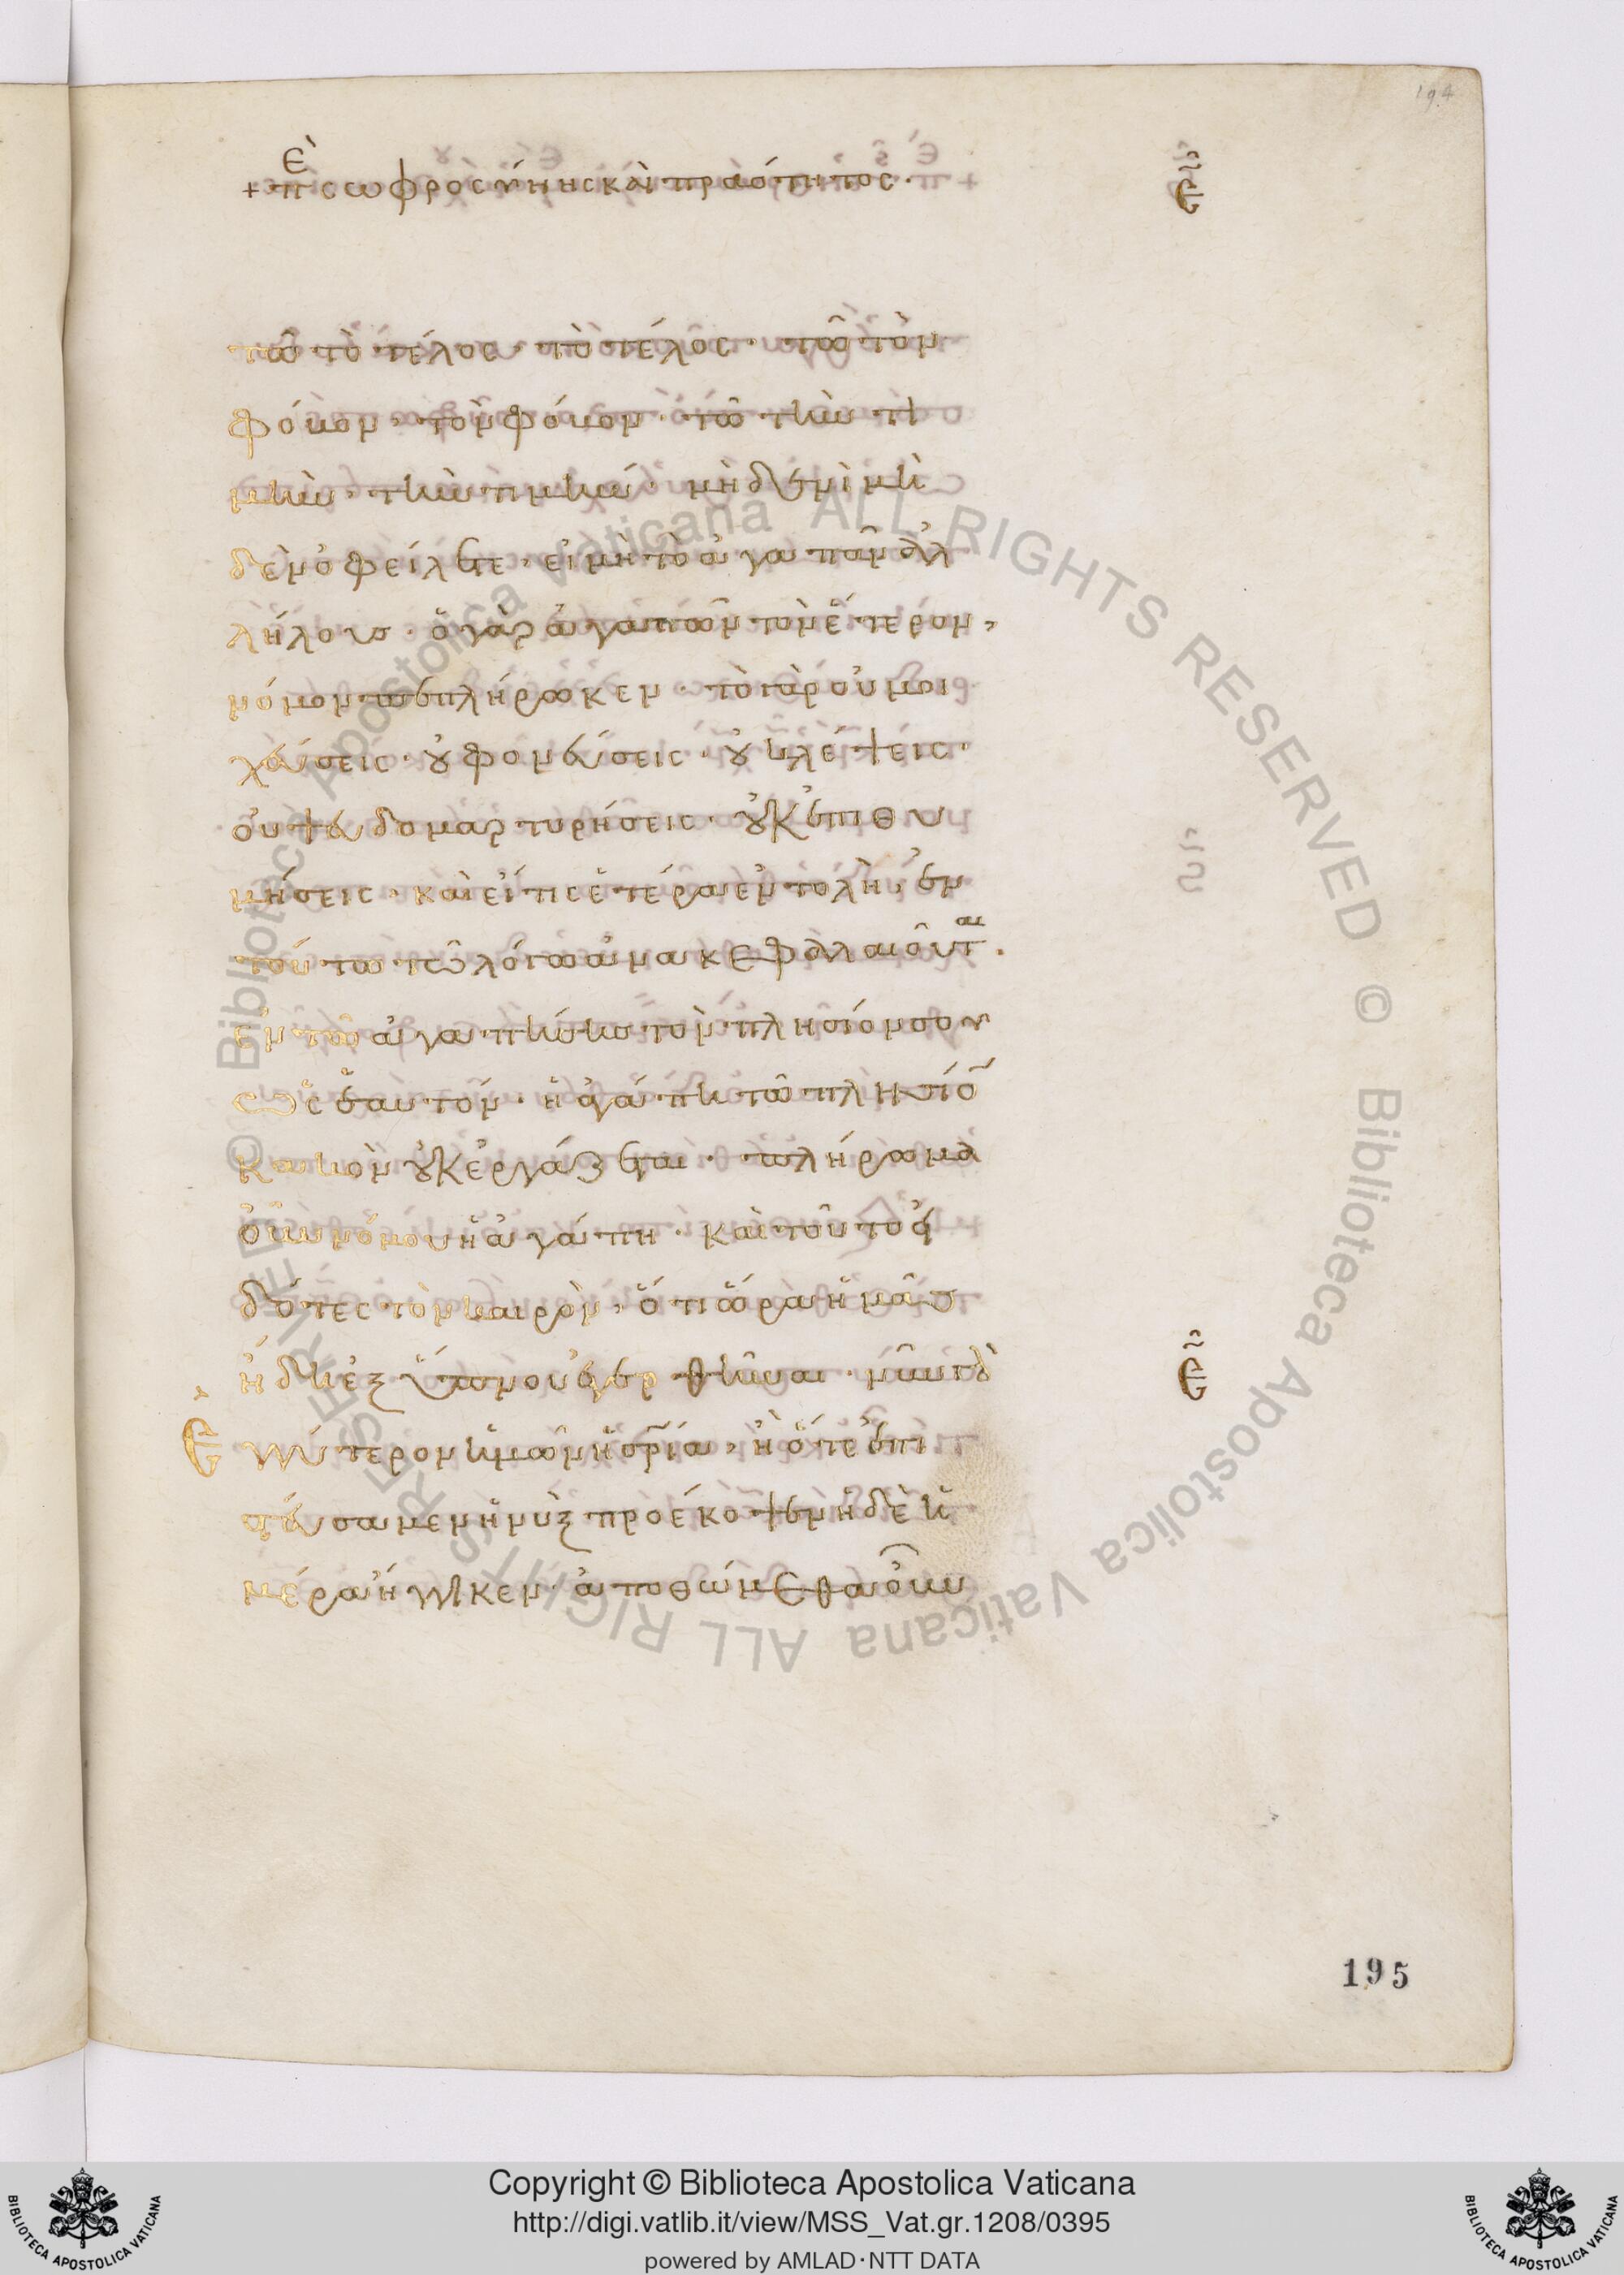 194
+ πὲ σωφροσύνης καὶ πραότητος ·
τῶ τὸ τέλος · τὸ τέλος · τῶ τὸν
φόβον · τὸν φόβον · τῶ τὴν τι
μὴν · τὴν τιμήν · μηδενὶ μη
δὲν ὀφείλετε · εἰ μὴ τὸ ἀγαπᾶν ἀλ
λήλους · ὁ γὰρ ἀγαπῶν τὸν ἕτερον,
νόμον πεπλήρωκεν · τὸ γὰρ οὐ μοι
χεύσεις · οὐ φονεύσεις · οὐ κλέψεις ·
οὐ ψευδομαρτυρήσεις · οὐκ ἐπιθυ
μήσεις · καὶ εἴ τις ἑτέρα ἐντολὴ, ἐν
τούτω τῶ λόγω ἀνακεφαλαιοῦται ·
ἐν τῶ ἀγαπήσεις τὸν πλησίον σου
ὡς ἑαυτόν · ἡ ἀγάπη τῶ πλησίον
κακὸν οὐκ ἐργάζεται · πλήρωμα
οὖν νόμου ἡ ἀγάπη · καὶ τοῦτο εἰ
δότες τὸν καιρὸν, ὅτι ὥρα ἡμᾶς
ἤδη ἐξ ὕπνου ἐγερθῆναι · νῦν γὰρ
ἐγγύτερον ἡμῶν ἡ σρία, ἢ ὅτε ἐπι
στεύσαμεν ἡ νὺξ προέκοψεν ἡ δὲ ἡ
μέρα ἤγγικεν · ἀποθώμεθα οὖν
195
© Biblioteca Apostolica Vaticana ALL RIGHTS RESERVED
© Biblioteca Apostolica Vaticana ALL RIGHTS RESERVED
BIBLIOTECA APOSTOLICA VATICANA
Copyright © Biblioteca Apostolica Vaticana
http://digi.vatlib.it/view/MSS_Vat.gr.1208/0395
powered by AMLAD·NTT DATA
BIBLIOTECA APOSTOLICA VATICANA